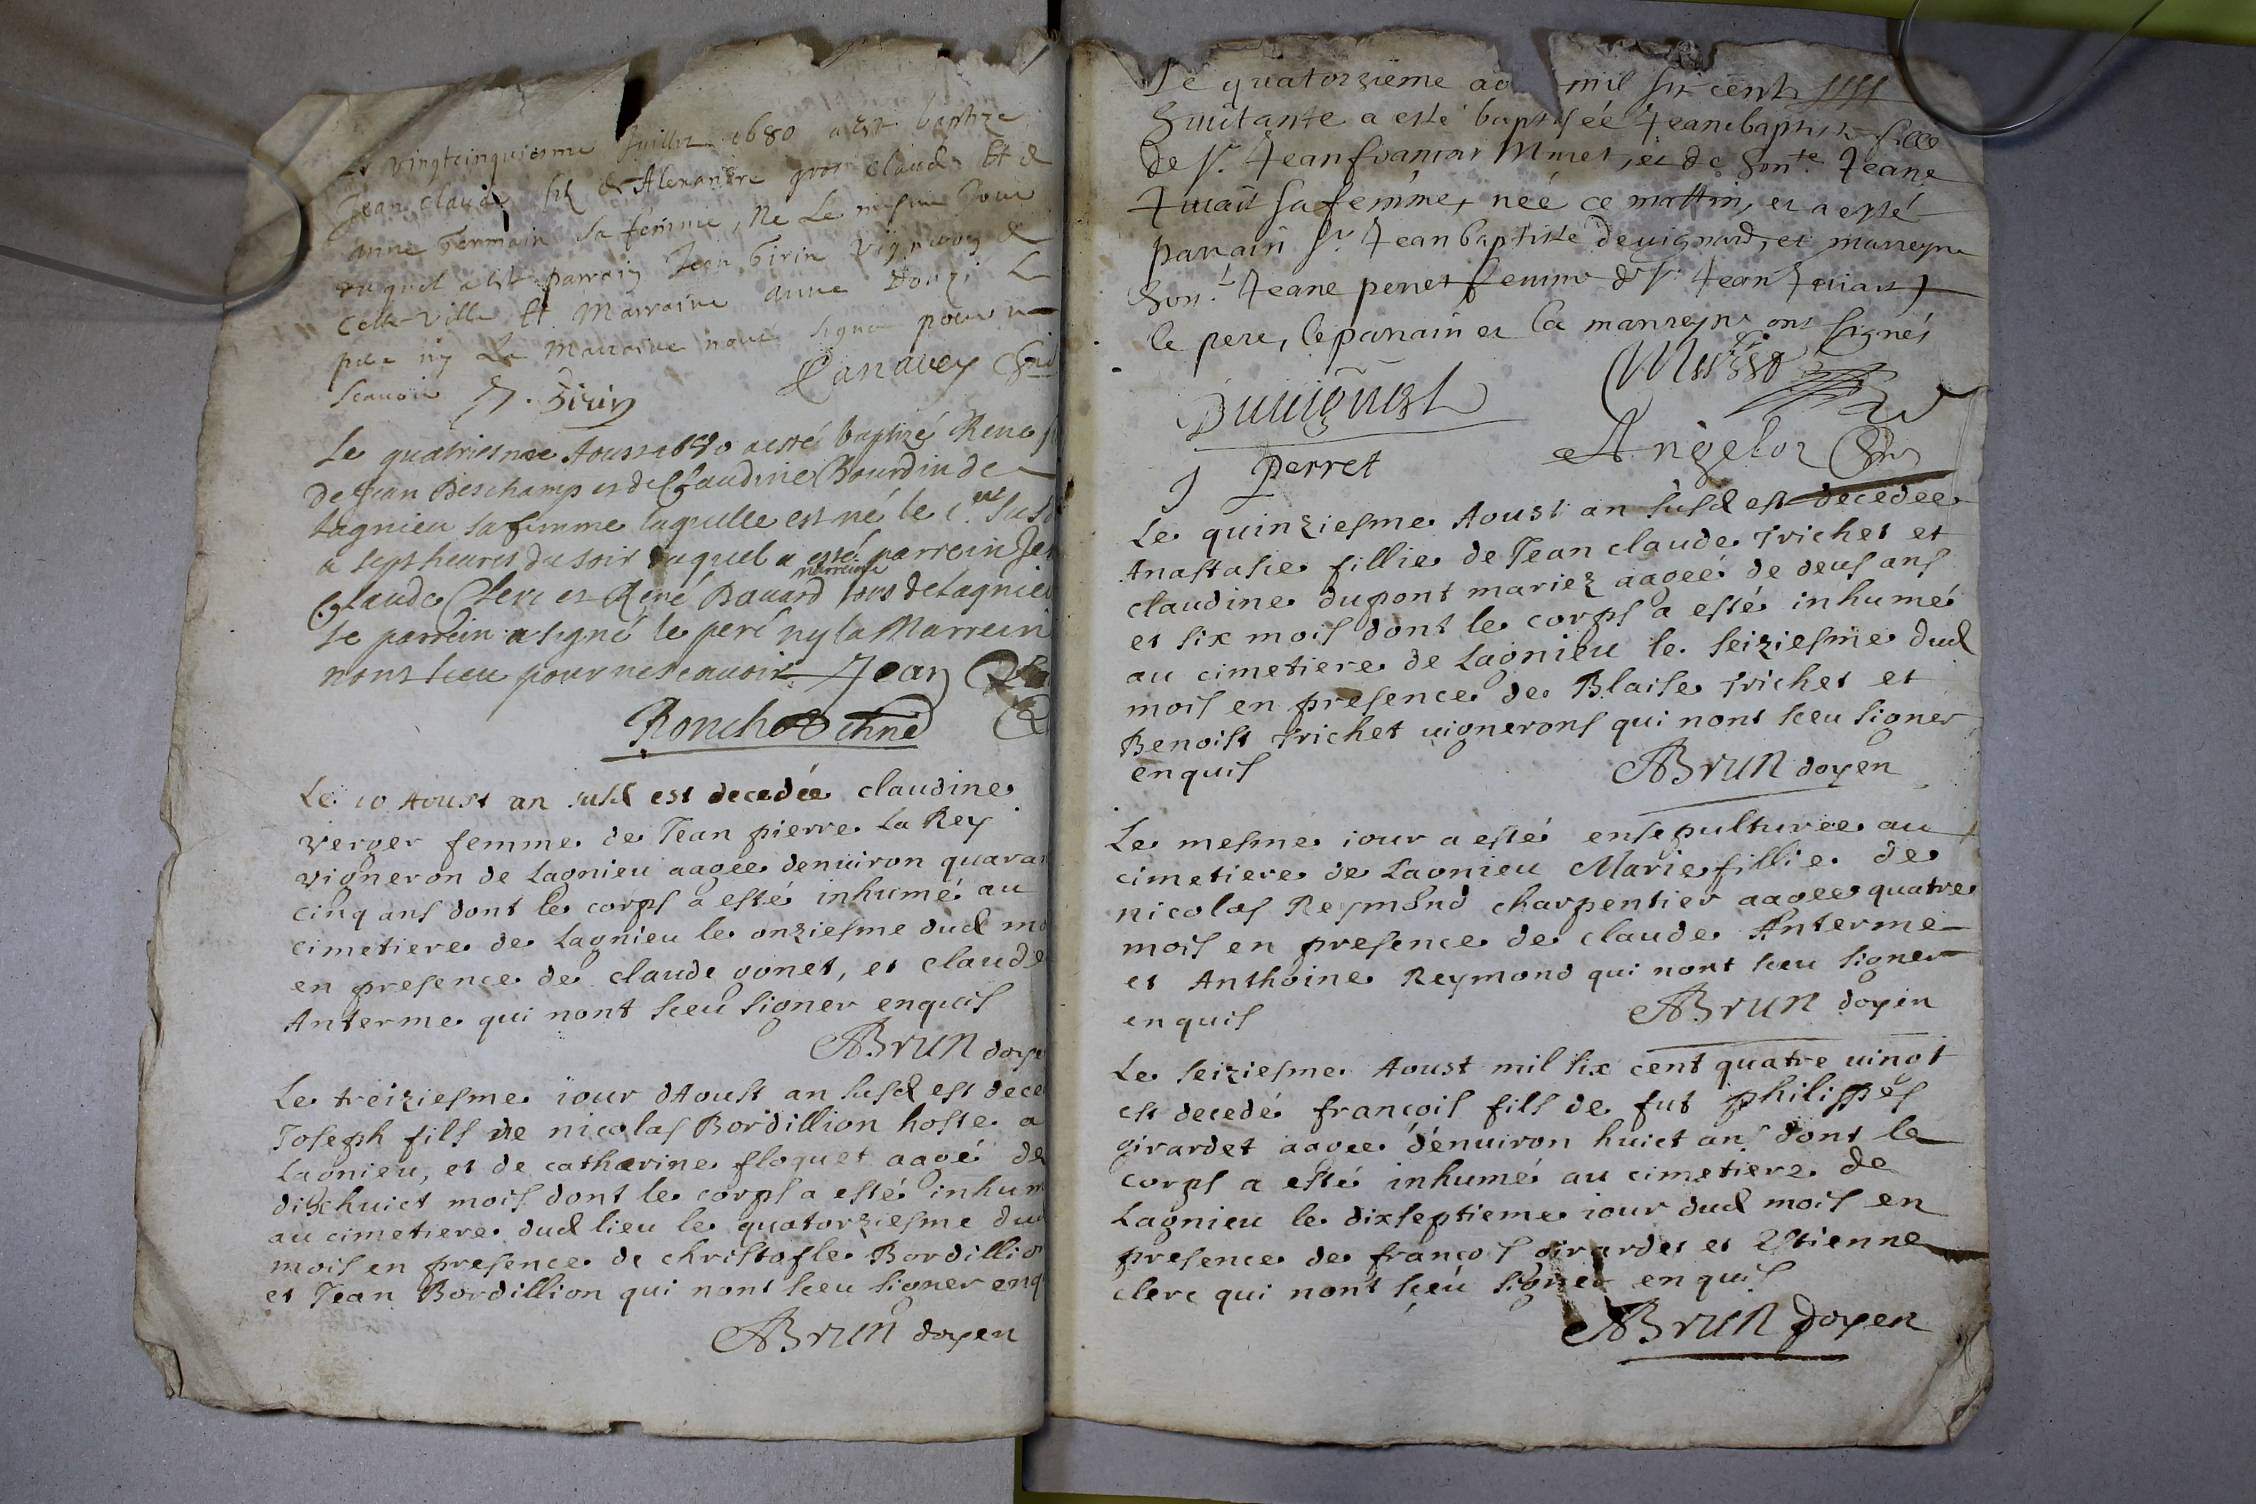 Le vingtcinquiesme Juillet 1680 a est baptize
Jean claude filz de Alexandre gros claude Et d
anne Germain sa femme, Ne Le mesme Jour
duquel a est parrain Jean Girin Vigneron de
Cette Ville Et Marraine anne Le
pere ny La Marraine nont signe pour ne
scauoir J. Girin Canauex
Le quatriesme Aoust 1680 a esté baptizé Rene
de Jean Deschamp et de Claudine Bourdin de
Lagnieu sa femme laquelle est né le 1er
a sept heures du soir duquel a esté parrein
marreine
Claude Clerc et René Bauard tous de Lagnieu
le parrein a signé le peré ny la Marrein
nont sceu pour ne scauoir Jean
Ronchod
Le 10 Aoust an susd est decedée claudine
verger femme de Jean pierre La Rey
vigneron de Lagnieu aagee denuiron quaran
cinq ans dont le corps a esté inhumé au
cimetiere de Lagnieu le onziesme dud mo
en presence de claude gonet, et claude
Anterme qui nont sceu signer enquis
ABrun doye
Le treiziesme iour dAoust an susd est dece
Joseph fils de nicolas Bordillion hoste a
Lagnieu, et de catharine floquet aagé de
dixhuict mois dont le corps a esté inhum
au cimetiere dud lieu le quatorziesme dud
mois en presence de christofle Bordillion
et Jean Bordillion qui nont sceu signer enq
ABrun doyen
Le quatorzieme ao mil six cent
huictante a esté baptisée Jeane baptiste fille
de sr. Jean francois et de hon.te Jeane
Juiait sa femme, née ce mattin, et a esté
parain sr Jean baptiste deuignard, et marreyne
hon.te Jeane perret femme de sr Jean
le pere, le parain et la marreyne ont signés
J Perret Angelot
Le quinziesme Aoust an susd est decedee
Anastasie fillie de Jean claude trichet et
claudine dupont mariez aagee de deus ans
et six mois dont le corps a esté inhumé
au cimetiere de Lagnieu le seiziesme dud
mois en presence de Blaise trichet et
Benoist trichet uignerons qui nont sceu signer
enquis ABrun doyen
Le mesme iour a esté ensepulturee au
cimetiere de Lagnieu Marie fillie de
nicolas Reymond charpentier aagee quatre
mois en presence de claude Anterme
et Anthoine Reymond qui nont sceu signer
enquis ABrun doyen
Le seiziesme Aoust mil six cent quatre uingt
est decedé françois fils de fut philippes
girardet aagee denuiron huict ans dont le
corps a esté inhumé au cimetiere de
Lagnieu le dixseptieme iour dud mois en
presence de françois girardet et Estienne
clerc qui nont sçeu signer enquis
ABrun doyen